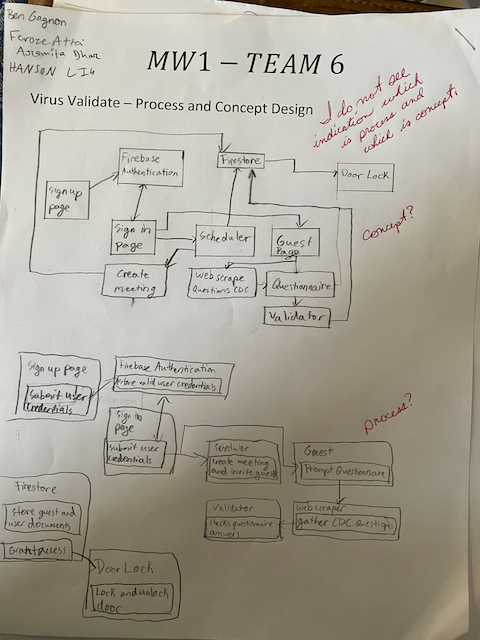 Ben Gagnon
Feroze
Aramita Dhar
HANSON
MW1 – TEAM 6
Virus Validate – Process and Concept Design
I do not see
indication which
is process and
which is concept.
Firebase
Authentication
Firestore
Door Lock
Sign up
page
Sign in
page
Scheduler
Guest
Page
concept?
Create
meeting
Webscrape
Questions CDC
Questionnaire
Validator
Sign up page
Submit user
credentials
Firebase Authentication
store valid user credentials
Sign in
page
Submit user
credentials
process?
Scheduler
create meeting
and invite guest
Guest
Prompt Questionnaire
Firestore
store guest and
user documents
Grant access
Validator
checks questionnaire
answers
webscraper
gather CDC Questions
Door Lock
Lock and unlock
door